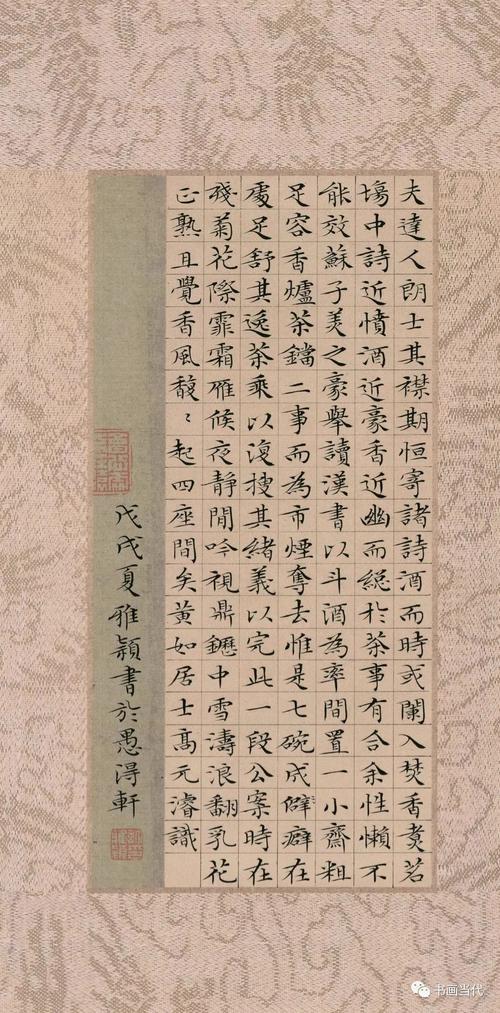 夫達人朗士其襟期恒寄諸詩酒而時或闌入焚香煑茗
塲中詩近憤酒近豪香近幽而緫於茶事有合余性懶不
能效蘇子美之豪舉讀漢書以斗酒為率間置一小齋粗
足容香爐茶鐺二事而為市煙奪去惟是七碗成僻癖在
處足舒其逸茶乘以復搜其緒義以完此一段公案時在
殘菊花際霏霜雁候夜靜閒吟視鼎鑣中雪濤浪翻乳花
正熟且覺香風馥〻起四座間矣黃如居士高元濬識
戊戌夏雅穎書於愚得軒
书画当代